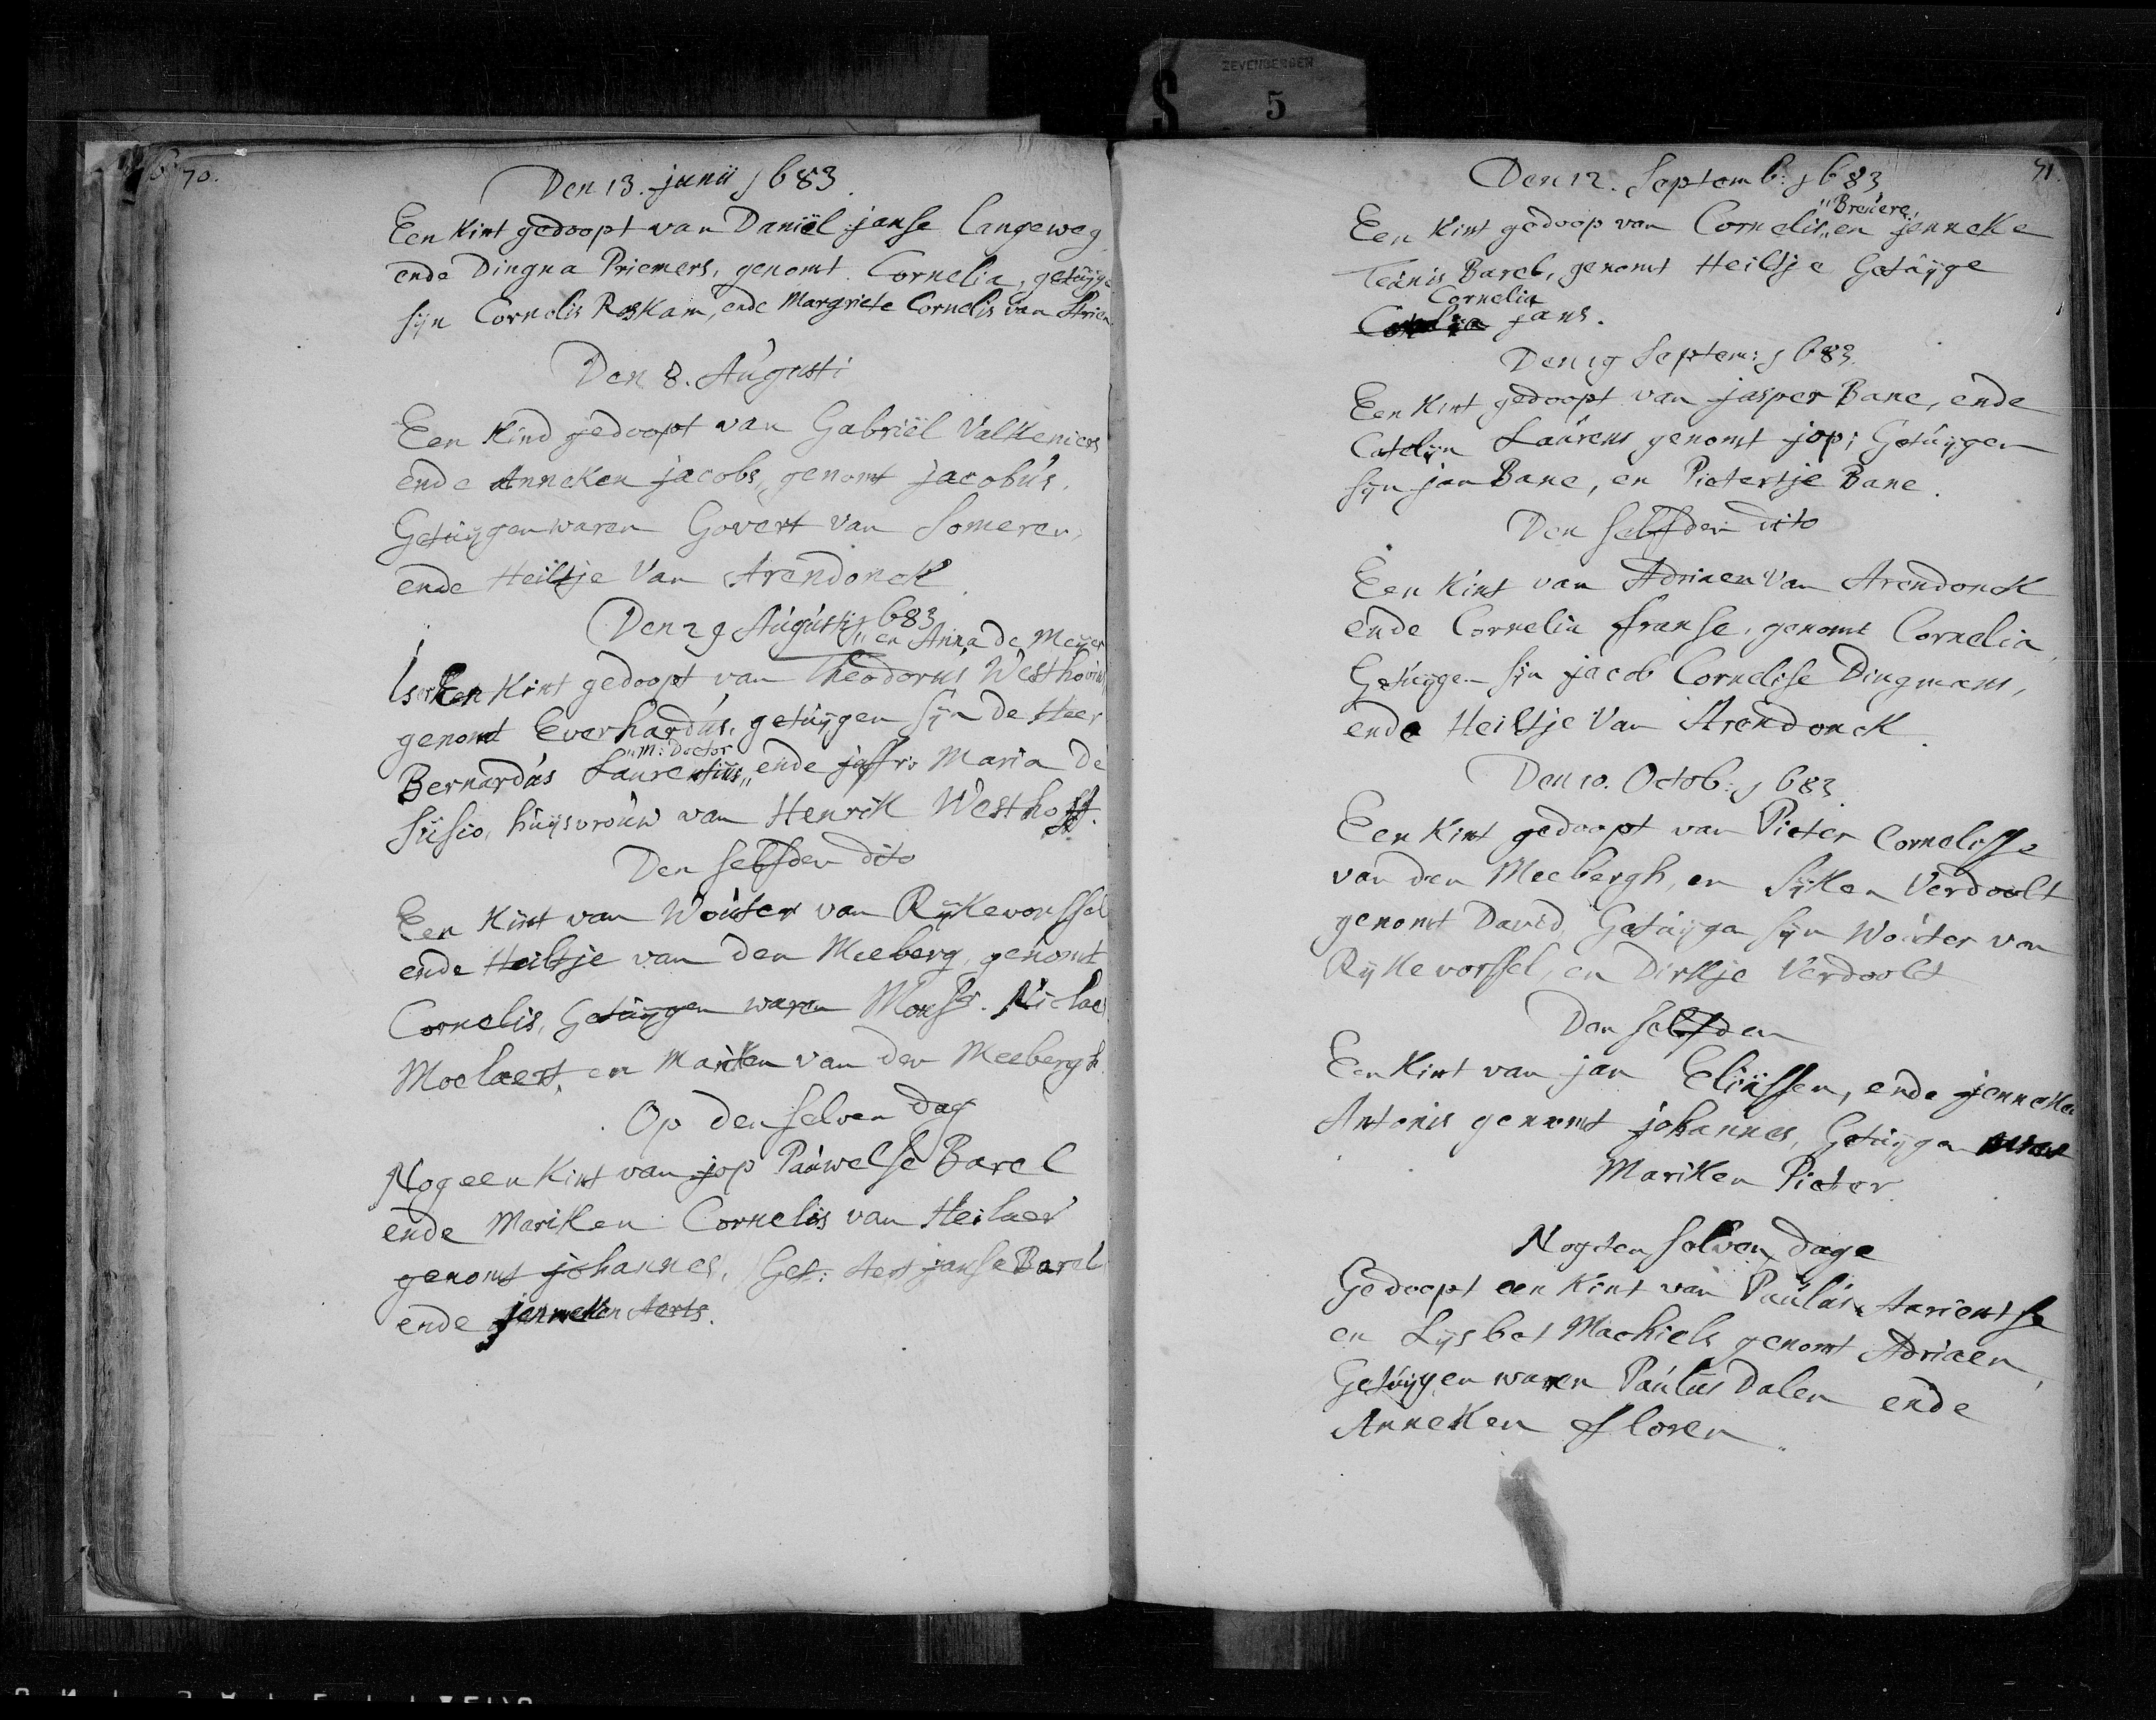 ZEVENBERGEN
S 5
70.
Den 13. junii 1683.
Een Kint gedoopt van Daniël janse Langeweg
ende Dingna Priemers, genomt Cornelia, getuÿge
sÿn Cornelis Roskam, ende Margriete Cornelis van Strien
Den 8. Augusti
Een Kind gedoopt van Gabriël Valkeniers
ende Anneken jacobs, genomt jacobus.
Getuÿgen waren Govert van Someren,
ende Heiltje Van Arendonck.
Den 29 Augusti 1683
" en Anna de Meÿer
Een Kint gedoopt van Theodorus Westhovius
genomt Everhardus, getuÿgen sÿn de Heer
" M: Doctor
Bernardus Laurentius " ende juffr: Maria de
huÿsvrouw van Henrik Westhoff.
Den selfden dito
Een Kint van Wouter van Rÿkevorssel
ende Heiltje van den Meeberg, genomt
Cornelis, Getuÿgen waren Monsr. Niclaes
Moelaert, en Mariken van den Meebergh.
Op den selven dag
Nog een Kint van jop Pauwelse Barel
ende Mariken Cornelis van Heilaer
genomt johannes, Get: Aert janse Barel
ende jenneken Aerts.
71.
Den 12. Septemb: 1683
" Breuere,
Een Kint gedoop van Cornelis " en jenneke
Teunis Barel, genomt Heiltje Getuÿge
Cornelia
jans.
Den 19 Septem: 1683.
Een Kint gedoopt van jasper Bane, ende
Catelÿn Laurens genomt jop; Getuÿgen
sÿn jan Bane, en Pietertje Bane.
Den selfden dito
Een Kint van Adriaen Van Arendonck
ende Cornelia franse, genomt Cornelia,
Getuÿgen sÿn jacob Cornelise Dingmans,
ende Heiltje Van Arendonck.
Den 10. Octob: 1683.
Een Kint gedoopt van Pieter Cornelisse
van den Meebergh, en Sÿken Verdoolt
genomt David, Getuÿgen sÿn Wouter van
Rÿkevorssel, en Dirkje Verdoolt
Den selfden
Een Kint van jan Eliissen, ende jenneken
Antonis genomt johannes, Getuÿgen
Mariken Pieter.
Nog den selven dage
Gedoopt een Kint van Paulus Aarientse
en Lÿsbet Machiels genomt Adriaen,
Getuÿgen waren Paulus Dalen ende
Anneken floren.